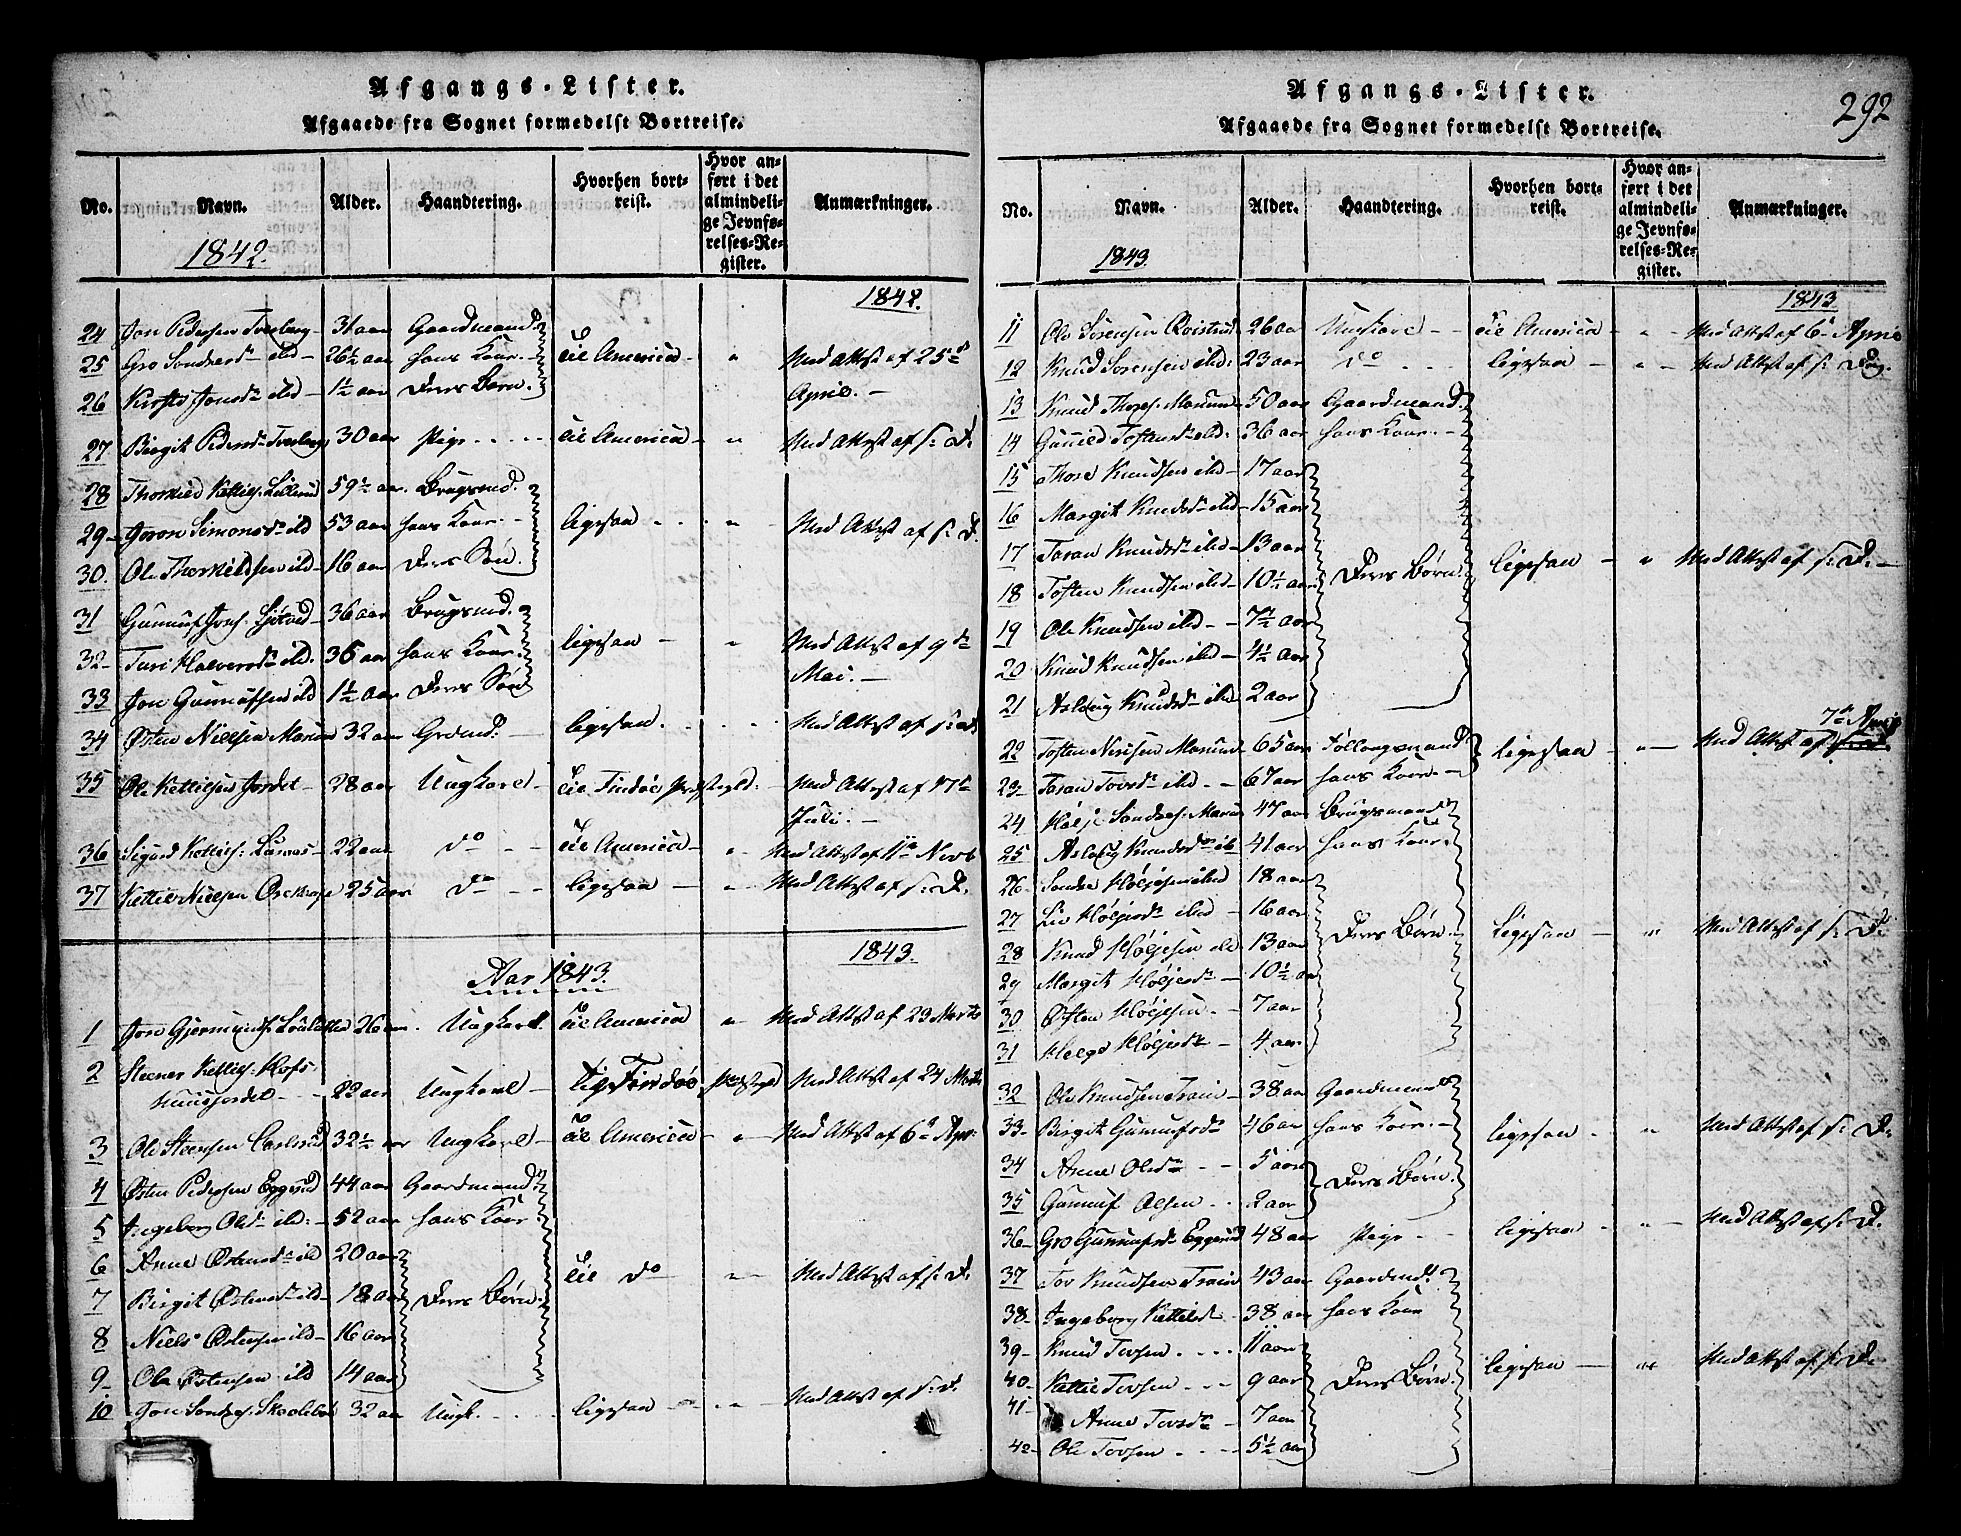 Afgangs-Lister.
Afgaaede fra Sognet formedelst Bortreise.
No. Navn. Alder. Haandtering. Hvorhen bortreist. Hvor anført i det almindelige Jevnførelses-Register. Anmærkninger.
1842. 1842.
24 Jon Pedersen Tveberg 31 aar Gaardmand
25 Gro Sondresdr ibd 26½ aar hans Kone til America " Med Attest af 25de
26 Kirsti Jonsdr ibd 1½ aar Deres Barn April.
27 Birgit Pedersdr Tveberg 30 aar Pige til America " Med Attest af s: D.
28 Thorkild Kettils: 59½ aar Brugsmd.
29 Joron Simonsdr ibd 53 aar hans Kone ligesaa " Med Attest af s: D.
30. Ole Thorkildsen ibd 16 aar Deres Søn.
31 Gunnuf Jons: 36 aar Brugsmd.
32 Turi Halvorsdr ibd. 36 aar hans Kone ligesaa " Med Attest af 9de
33 Jon Gunnufsen ibd 1½ aar Deres Søn Mai.
34 Østen Nielsen Marum 32 aar Grdmd. ligesaa. Med Attest af s: d.
35 Ole Kettilsen Jordet 28 aar Ungkarl til Tindøe Præstegld. Med Attest af 17de
Juli.
36 Sigurd Kettils: 22 aar do til America " Med Attest af 11te Novb
37 Kettil Nielsen 25 aar do ligesaa " Med Attest af s: D.
1843.
Aar 1843.
1 Jon Gjermunds: 26 aar Ungkarl. til America " Med Attest af 23 Marts
2 Steener Kettils: Hofs
22 aar Ungkarl Tindøe Præstegld Med Attest af 24 Marts
3 Ole Steensen 32½ aar Ungkarl til America " Med Attest af 6te Apr:
4 Østen Pedersen Eggerud 44 aar Gaardmand
5 Ingeborg Olsdr ibd: 52 aar hans Kone
6 Anne Østensdr ibd 20 aar til do " Med Attest af s: D.
7 Birgit Østensdr ibd 18 aar Deres Børn.
8 Niels Østensen ibd 16 aar
9 Ole Østensen ibd 14 aar
10 Jon Sondres: 32 aar Ungk. ligesaa " Med Attest af s: d.
Afgangs-Lister. 292
Afgaaede fra Sognet formedelst Bortreise.
No. Navn. Alder. Haandtering. Hvorhen bortreist. Hvor anført i det almindelige Jevnførelses-Register. Anmærkninger.
1843. 1843
11 Ole Sorensen 26 aar Ungkarl til America " Med Attest af 6te April
12 Knud Sorensen ibd: 23 aar do ligesaa " Med Attest af s: Dag.
13 Knud Thores: Marum 50 aar Gaardmand
14 Gunild Tostensdr ibd: 36 aar hans Kone.
15 Thore Knudsen ibd 17 aar
16 Margit Knudsdr ibd 15 aar
17 Taran Knudsdr ibd 13 aar Deres Børn ligesaa " Med Attest af s: D.
18 Tosten Knudsen ibd 10½ aar
19 Ole Knudsen ibd 7½ aar
20 Knud Knudsen ibd 4½ aar
21 Aslaug Knudsdr ibd 2 aar
7de April
22 Tosten Marum 65 aar Føllougsmand ligesaa " Med Attest af
23 Taran Tovsdr ibd 67 aar hans Kone.
24 Høljε Sondres: Marum 47 aar Brugsmand
25 Aslaug Knudsdr ib 41 aar hans Kone.
26 Sondre Høljesen ibd 18 aar
27 Liv Høljesdr ibd 16 aar Deres Børn. Ligesaa " Med Attest af s: D.
28 Knud Høljesen ibd 13 aar
29 Margit Høljesdr 10½ aar
30 Østen Høljesen 7 aar
31 Helge Høljesdr 4 aar
32 Ole Knudsen Traim 38 aar Gaardmand
33 Birgit Gunnufsdr 46 aar hans Kone ligesaa " Med Attest af s: D.
34 Anne Olsdr 5 aar Deres Børn.
35 Gunnuf Olsen 2 aar
36 Gro Gunnufsdr Eggerud 48 aar Pige ligesaa " Med Attest af s: D.
37 Tov Knudsen Traim 43 aar Gaardmd.
38 Ingeborg Kettilsd 38 aar hans Kone
39 Knud Tovsen 11 aar ligesaa " Med Attest af s: D.
40 Kettil Tovsen 9 aar Deres Børn.
41 Anne Tovsdr 7 aar
42 Ole Tovsen 5½ aar